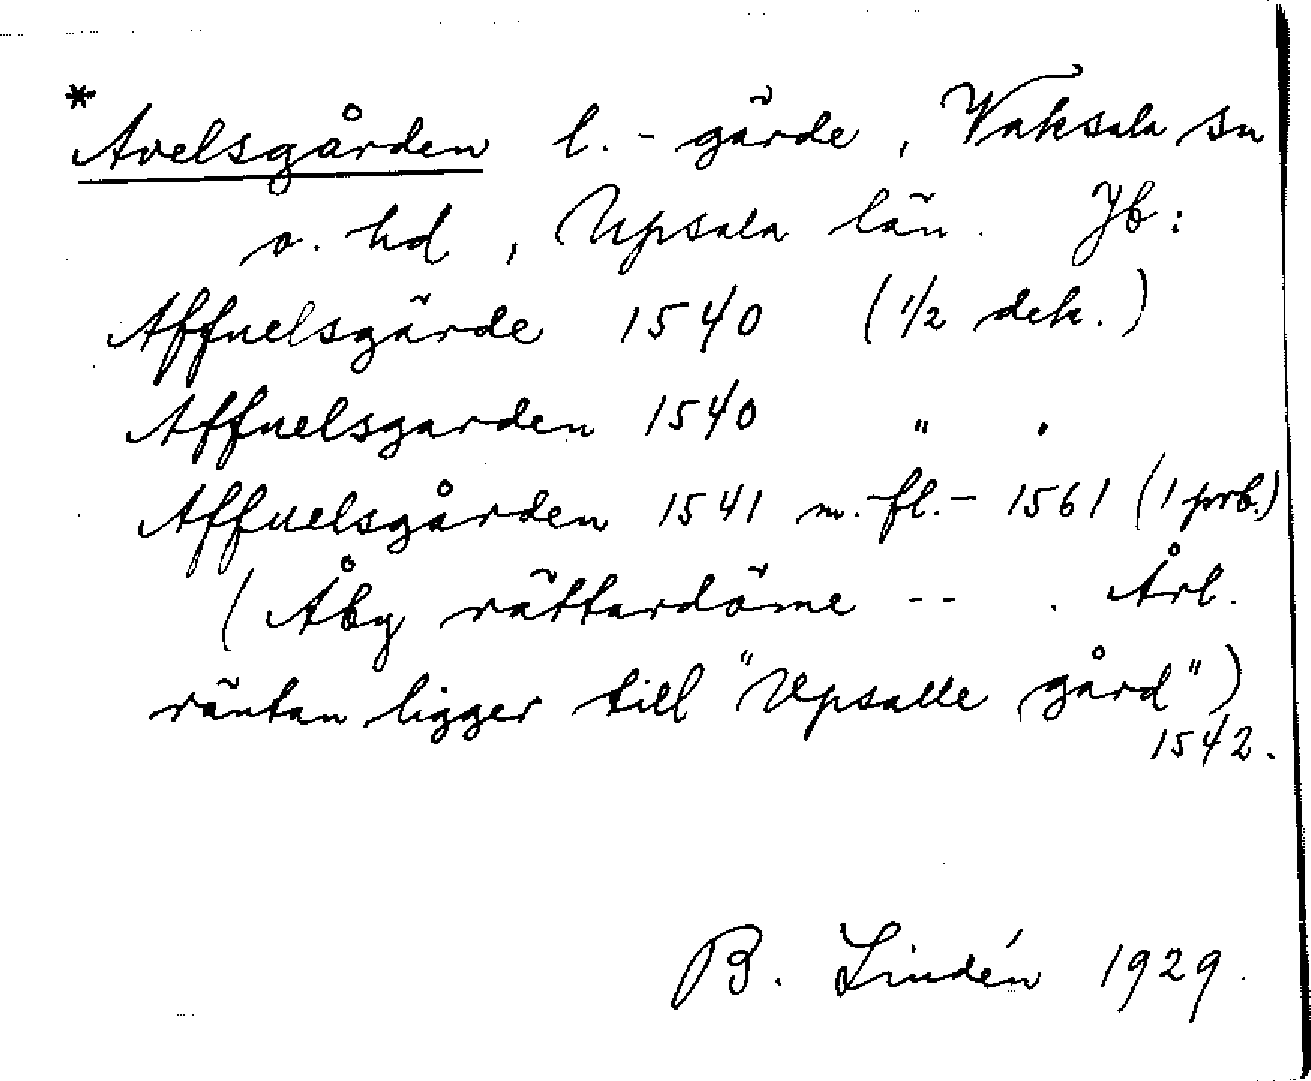 * Avelsgården l. - gärde, Vaksala sn
o. hd, Upsala län. Jb:
Affuelsgärde 1540 (1/2 dek.)
Affuelsgarden 1540 " "
Affuelsgården 1541 m. fl. - 1561 (1 prb.)
(Åby rättardöme -- . Årl.
räntan ligger till "Upsalle gård")
1542.
B. Lindén 1929.